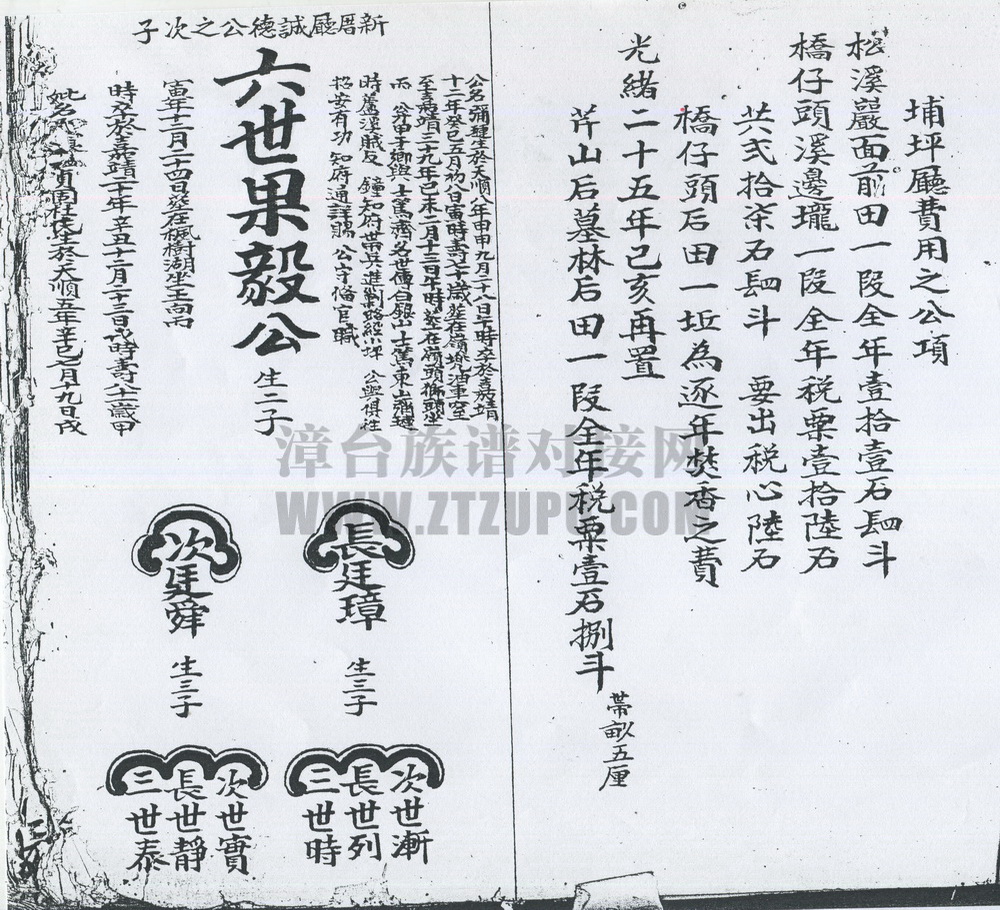 埔坪廳費用之公項
松溪巖面前田一段全年壹拾壹石肆斗
橋仔頭溪邊壠一段全年税粟壹拾陸石
共弍拾柒石肆斗 要出税心陸石
橋仔頭后田一坵為逐年焚香之費
光緒二十五年己亥再置
芹山后墓林后田一段全年税粟壹石捌斗
帶畝五厘
新厝廳誠德公之次子
公名 生於天順八年甲申九月二十八日午時卒於嘉靖
十二年癸巳五月初八日寅時壽七十歲葬在嶺
至嘉靖二十九年 二月十三日午時葬在嶺頭獅頭坐
時 溪賊反 鐘知府帶兵進剿路經小坪 公與俱往
招安有功 知府通詳賜 公守備官職
六世果毅公
生二子
寅年十二月二十四日葬在楓樹湖坐壬向丙
時卒於嘉靖二十年辛丑十二月二十三日戌時壽八十一歲甲
氏生於天順五年辛巳 月十九日戌
長廷璋
生三子
次廷舜
生三子
次世漸
長世列
三世時
次世實
長世靜
三世泰
漳台族谱对接网
WWW.ZTZUPU.COM